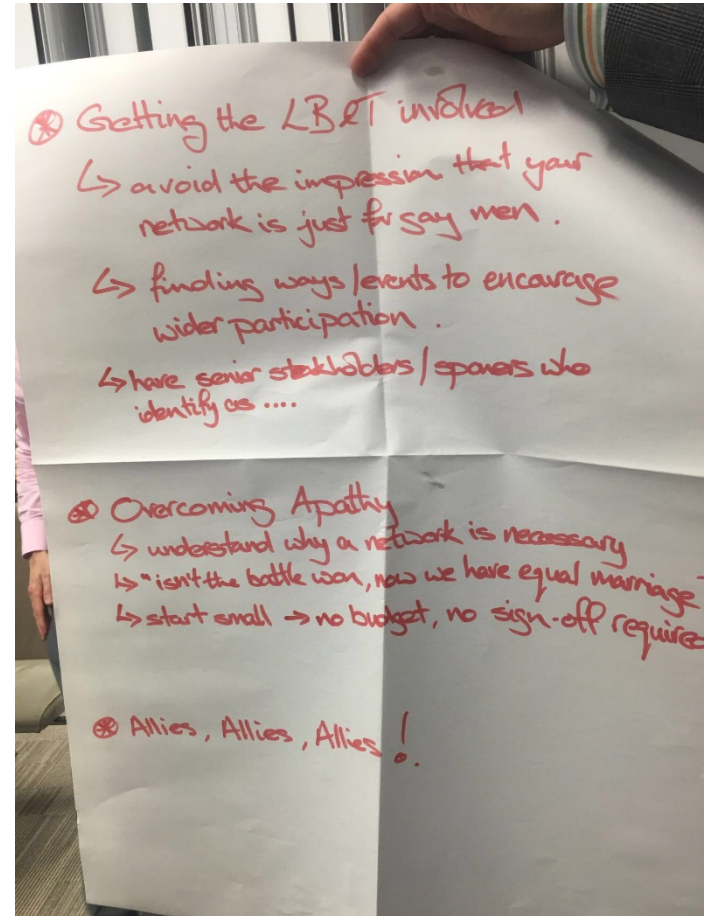 ⊛ Getting the LB&T involved
↳ avoid the impression that your
network is just for gay men.
↳ finding ways/events to encourage
wider participation.
↳ have senior stakholders/sponers who
identify as ....
⊛ Overcoming Apathy
↳ understand why a network is necessary
↳ "isn't the battle won, now we have equal marriage"
↳ start small → no budget, no sign-off required
⊛ Allies, Allies, Allies!